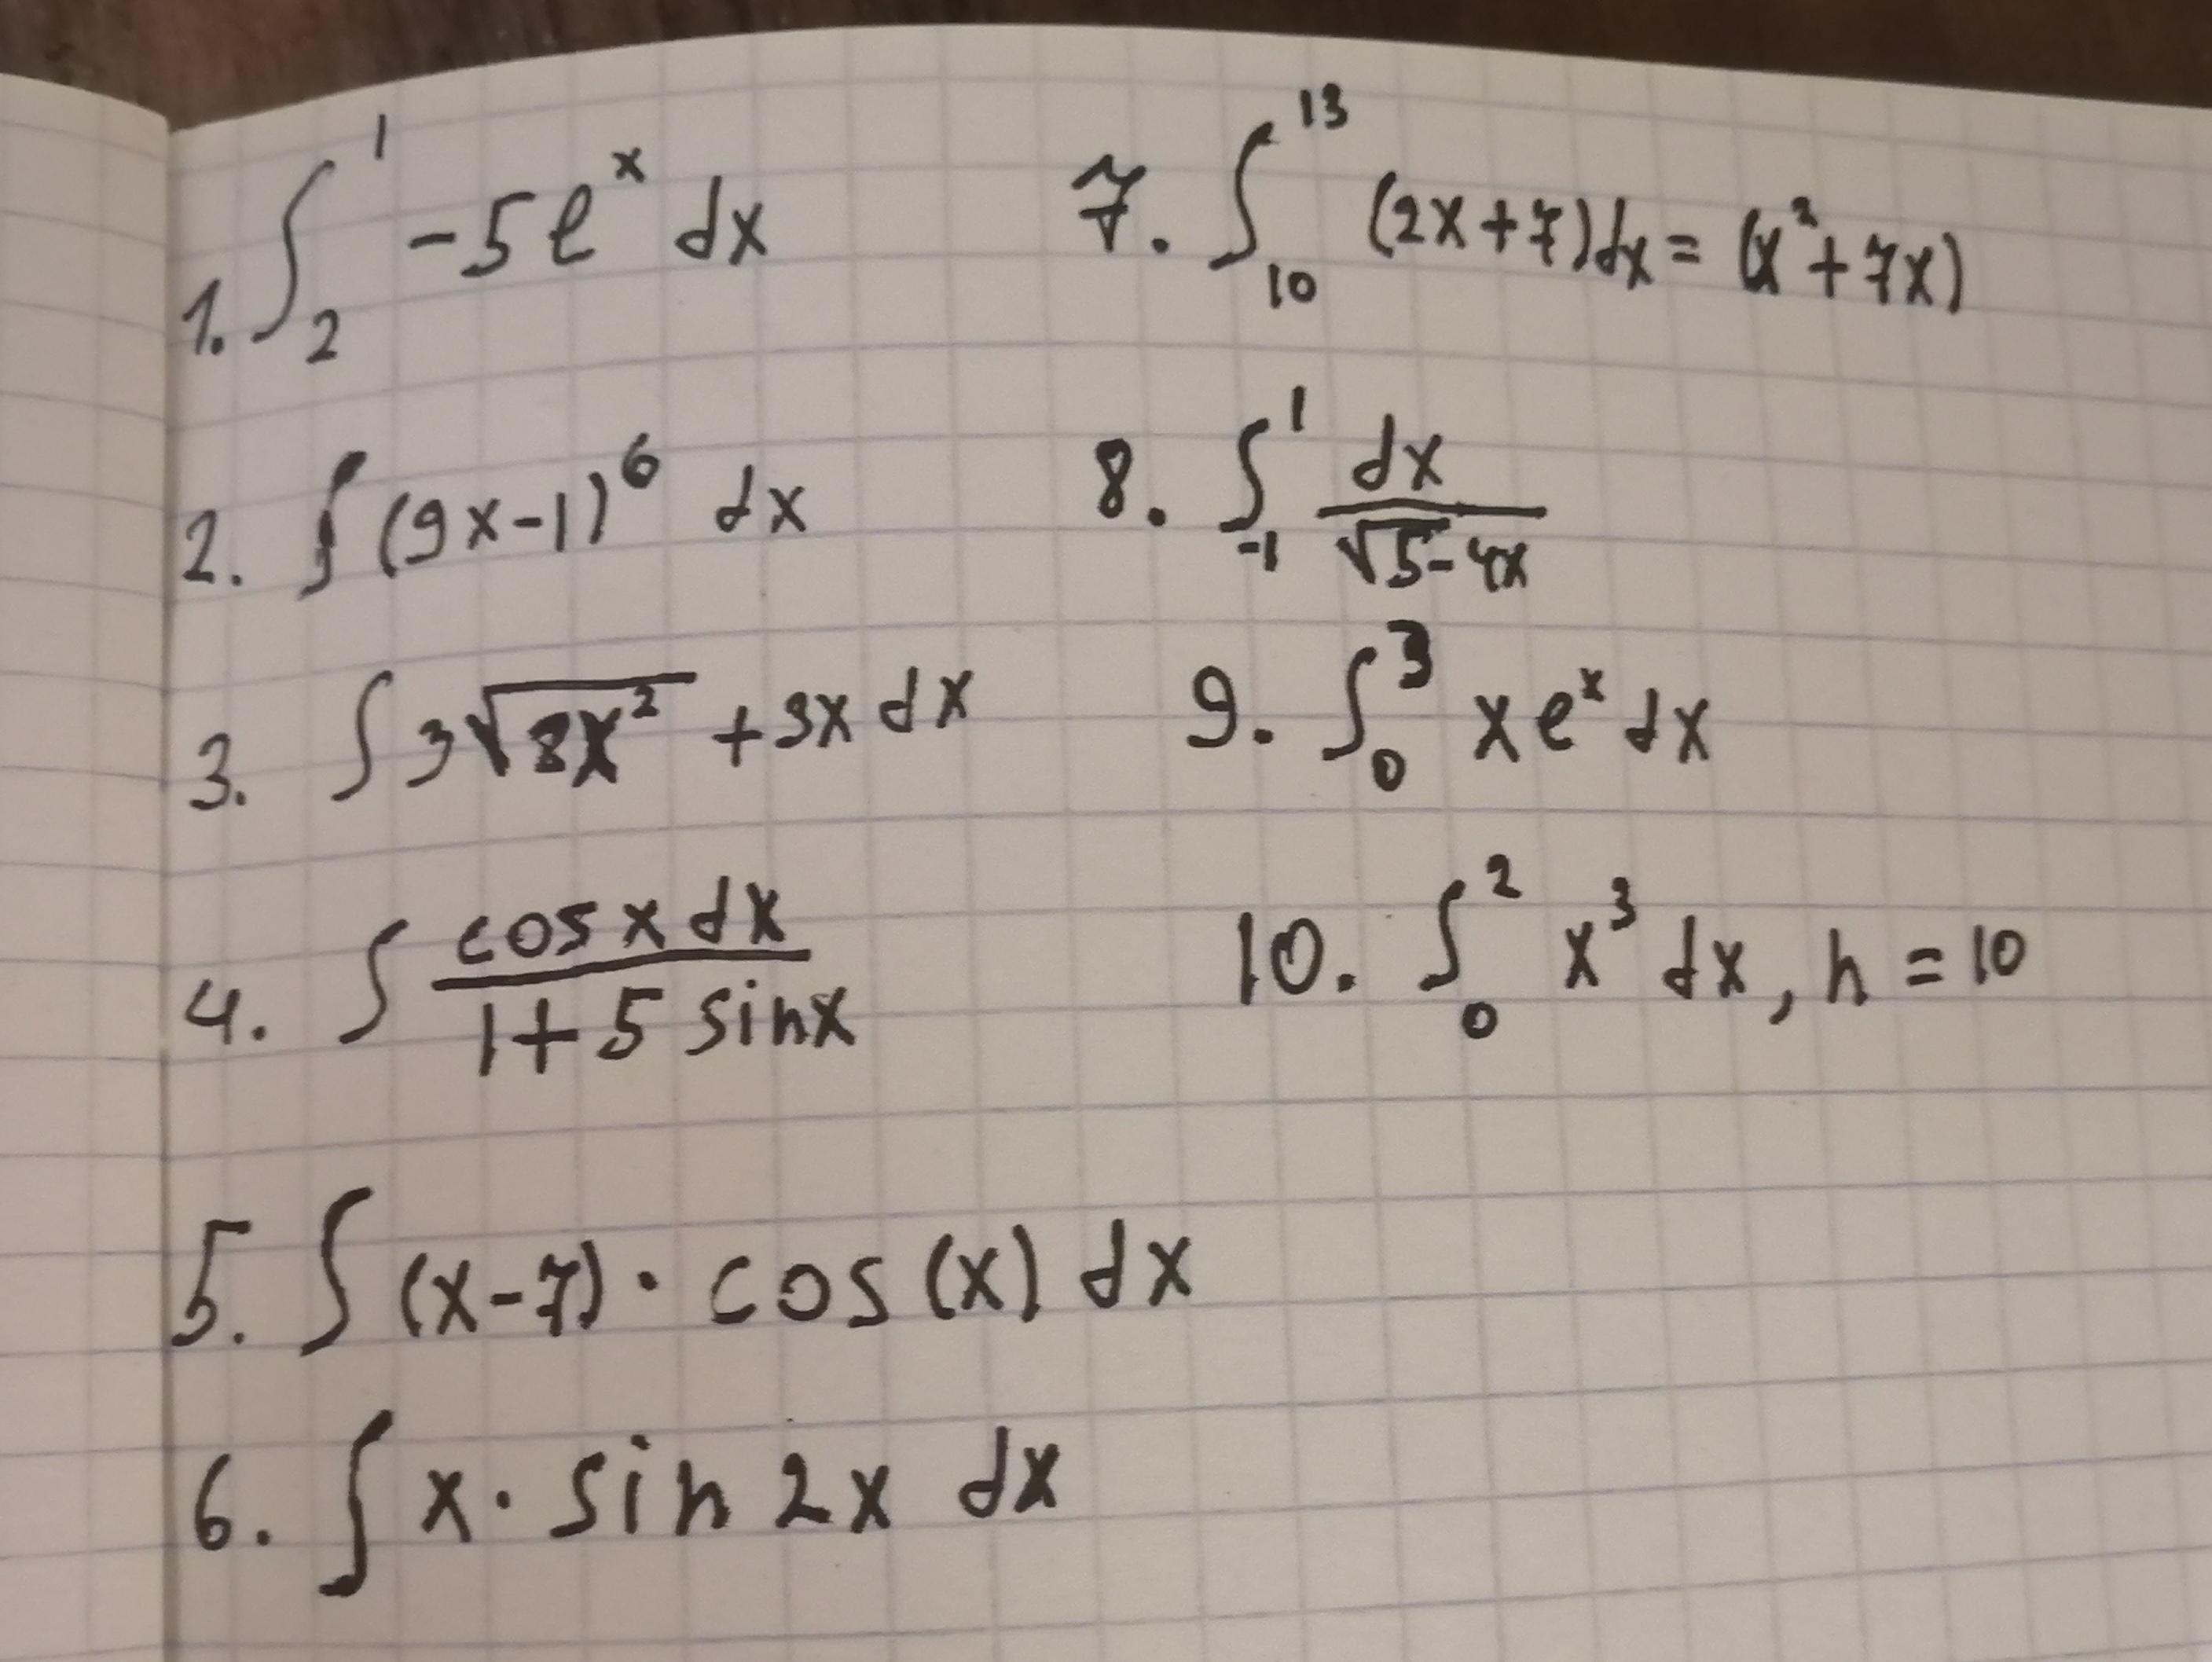 1. ∫₂¹ -5eˣ dx
2. ∫ (9x-1)⁶ dx
3. ∫ 3√(8x²) + 3x dx
4. ∫ cos x dx / 1 + 5 sinx
5. ∫ (x-7) · cos (x) dx
6. ∫ x · sin 2x dx
7. ∫₁₀¹³ (2x+7)dx = (x²+7x)
8. ∫₋₁¹ dx / √5-4x
9. ∫₀³ xeˣ dx
10. ∫₀² x³ dx, n = 10